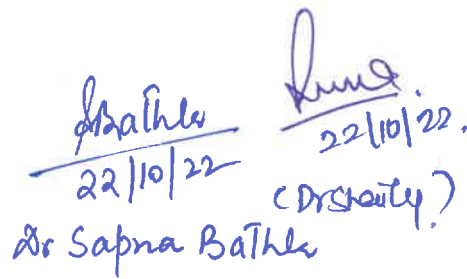 SBathla
22/10/22
Dr Sapna Bathla
22/10/22.
(Dr Shaily)